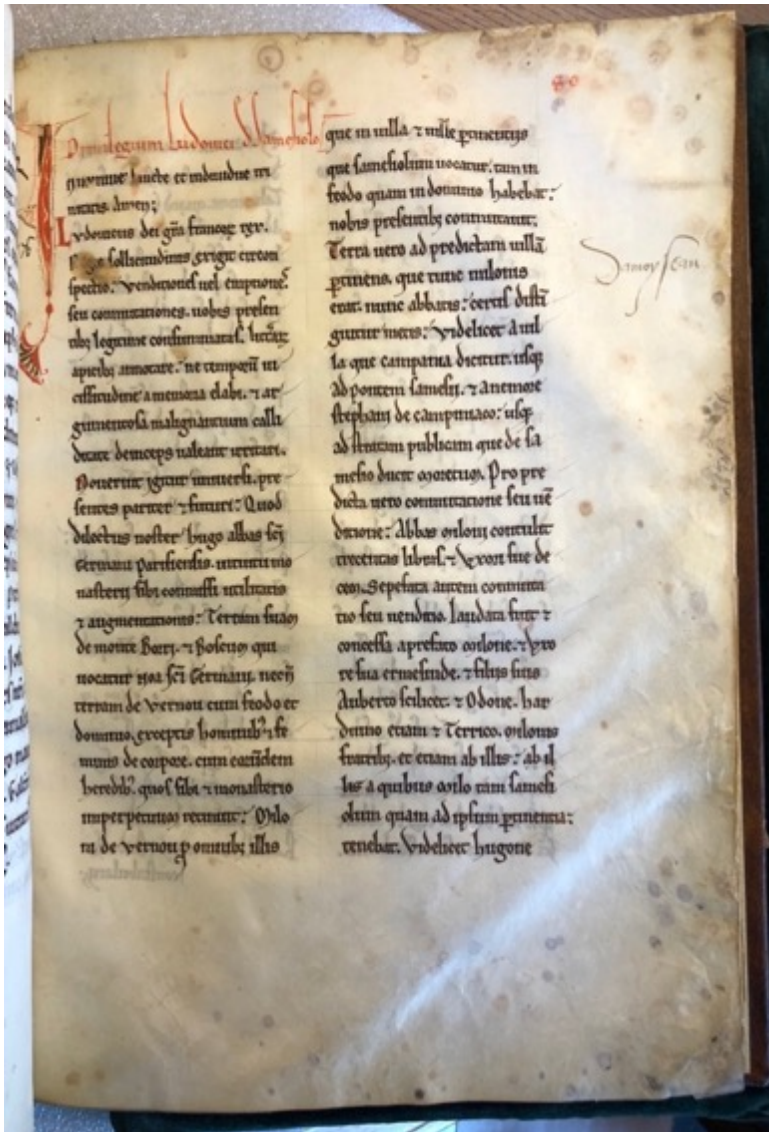 Privilegium Ludovici de Samesiolo
80
In nomine sancte et individue tri
nitatis. Amen;
Ludovicus dei gr̄a francoꝝ rex.
Rege sollicitudinis exigit circon
spectio: venditiones vel emptiones
seu conmutationes. nobis presen
tibꝫ legitime consummatas. litteraꝝ
apicibꝫ annotare. ne temporū vi
cissitudine a memoria elabi. ⁊ ar
gumentosa malignantium calli
ditate deinceps valeant irritari.
Noverint igitur universi. pre
sentes pariter ⁊ futuri: Quod
dilectus noster hugo abbas sc̄i
Germani parisiensis. intuitu mo
nasterii sibi conmissi utilitatis
⁊ augmentationis: Terram suam
de monte Berri. ⁊ Boscum qui
vocatur noa sc̄i Germani. necn̄
terram de vernou cum feodo et
dominio. exceptis hominibꝫ ⁊ fe
minis de corpore. cum eorūdem
heredibꝫ. quos sibi ⁊ monasterio
imperpetuum retinuit: Milo
ni de vernou ꝑ omnibꝫ illis
que in villa ⁊ ville ꝑtinentiis
que samesiolum vocatur. tam in
feodo quam in dominio habebat:
nobis presentibꝫ conmutavit.
Terra vero ad predictam villā
ꝑtinens. que tunc milonis
erat. nunc abbatis: certis distī
guitur metis: Videlicet a vil
la que campania dicitur. usqꝫ
ad pontem samesii. ⁊ a nemore
stephani de campiniaco: usqꝫ
ad stratam publicam que de sa
mesio ducit moretum. Pro pre
dicta vero conmutacione seu vē
ditione: Abbas miloni contulit
trecentas libras. ⁊ Uxori sue de
cem. Sepefata autem conmuta
tio seu venditio. laudata fuit ⁊
concessa a prefato milone. ⁊ Uxo
re sua ermesinde. ⁊ filiis suis
Auberto scilicet. ⁊ Odone. har
duino etiam ⁊ Terrico. milonis
fratribꝫ. et etiam ab illis: ab il
lis a quibus milo tam samesi
olum quam ad ipsum ꝑtinentia:
tenebat. Videlicet hugone
Samoyseau